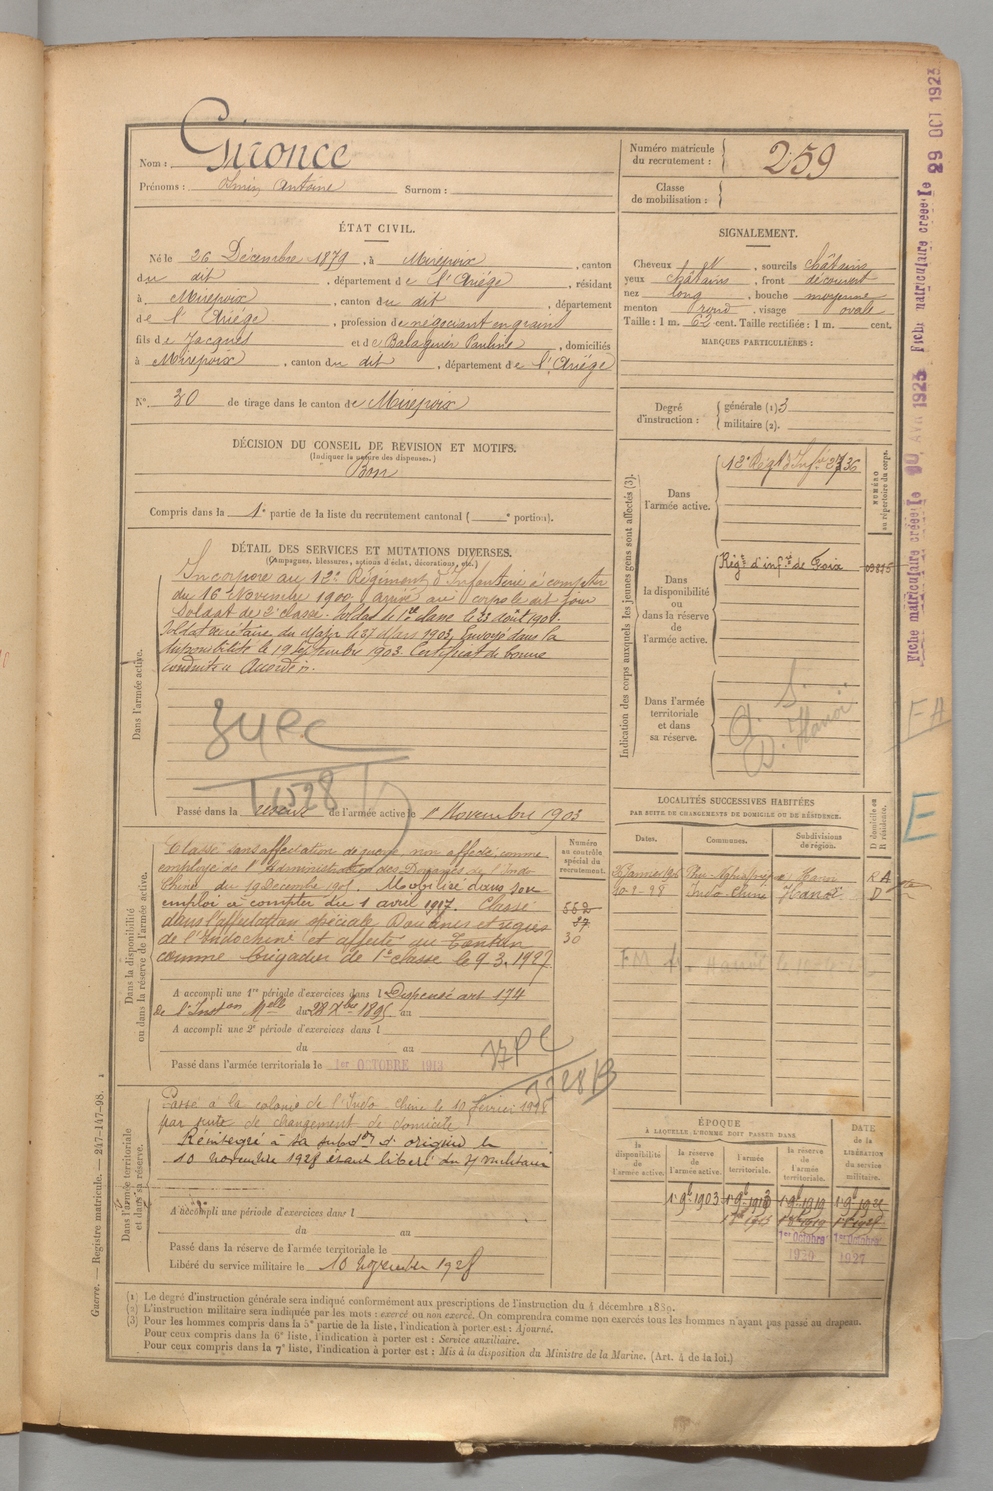 Nom : Gironce
Prénoms : Antoine Surnom :
ÉTAT CIVIL.
Né le 26 Décembre 1879, à Mirepoix, canton
du dit, département de l'Ariège, résidant
à Mirepoix, canton du dit, département
de l'Ariège, profession de négociant en grains
fils de Jacques et de Balaguier Pauline, domiciliés
à Mirepoix, canton du dit, département de l'Ariège
N° 30 de tirage dans le canton de Mirepoix
DÉCISION DU CONSEIL DE REVISION ET MOTIFS.
(Indiquer la nature des dispenses.)
Bon
Compris dans la 1e partie de la liste du recrutement cantonal ( e portion).
DÉTAIL DES SERVICES ET MUTATIONS DIVERSES.
(Campagnes, blessures, actions d'éclat, décorations, etc.)
Dans l'armée active.
Incorporé au 12e Régiment d'Infanterie à compter
du 16 Novembre 1900, arrivé au corps le dit jour
Soldat de 2e classe. Soldat de 1re classe le août 1901.
Soldat secrétaire du major le mars 1903. Envoyé dans la
disponibilité le 19 septembre 1903. Certificat de bonne
conduite Accordé.
Passé dans la réserve de l'armée active le 1 Novembre 1903
Dans la disponibilité
ou dans la réserve de l'armée active.
Classé sans affectation de guerre, non affecté comme
employé de l'Administration des Douanes de l'Indo
Chine du 19 Décembre 1905. Mobilisé dans son
emploi à compter du 1 avril 1917. Classé
dans l'affectation spéciale Douanes et régies
de l'Indochine et affecté au Tonkin
comme brigadier de 1e classe le 9.3.1927
Numéro
au contrôle
spécial du
recrutement.
552
37
30
A accompli une 1re période d'exercices dans l Dispensé art 174
de l'Inston Melle du 28 Xbre 1895 au
A accompli une 2e période d'exercices dans l
du au
Passé dans l'armée territoriale le 1er OCTOBRE 1913
Dans l'armée territoriale
et dans sa réserve.
Passé à la colonie de l'Indo Chine le 10 février 1928
par suite de changement de domicile
Réintégré à sa subdon d'origine le
10 novembre 1928 étant libéré du S militaire
A accompli une période d'exercices dans l
du au
Passé dans la réserve de l'armée territoriale le
Libéré du service militaire le 10 novembre 1928
Numéro matricule
du recrutement : 259
Classe
de mobilisation :
SIGNALEMENT.
Cheveux, sourcils châtains
yeux châtains, front découvert
nez long, bouche moyenne
menton rond, visage ovale
Taille : 1 m. 62 cent. Taille rectifiée : 1 m. cent.
MARQUES PARTICULIÈRES :
Degré
d'instruction :
générale (1) 3
militaire (2).
Indication des corps auxquels les jeunes gens sont affectés (3).
NUMÉRO
au répertoire du corps.
Dans
l'armée active.
12e Régt d'Infie
Dans
la disponibilité
ou
dans la réserve
de
l'armée active.
Régt d'infie de Foix
Dans l'armée
territoriale
et dans
sa réserve.
Hanoï
LOCALITÉS SUCCESSIVES HABITÉES
PAR SUITE DE CHANGEMENTS DE DOMICILE OU DE RÉSIDENCE.
Dates. Communes. Subdivisions
de région.
D domicile ou
R résidence.
Hanoï R
10-2-28 Indo Chine Hanoï D
ÉPOQUE
À LAQUELLE L'HOMME DOIT PASSER DANS
la
disponibilité
de
l'armée active.
la réserve
de
l'armée active.
l'armée
territoriale.
la réserve
de
l'armée
territoriale.
DATE
de la
LIBÉRATION
du service
militaire.
1r 9b 1903
1er Octobre 1er Octobre
1927
(1) Le degré d'instruction générale sera indiqué conformément aux prescriptions de l'instruction du 4 décembre 1889.
(2) L'instruction militaire sera indiquée par les mots : exercé ou non exercé. On comprendra comme non exercés tous les hommes n'ayant pas passé au drapeau.
(3) Pour les hommes compris dans la 5e partie de la liste, l'indication à porter est : Ajourné.
Pour ceux compris dans la 6e liste, l'indication à porter est : Service auxiliaire.
Pour ceux compris dans la 7e liste, l'indication à porter est : Mis à la disposition du Ministre de la Marine. (Art. 4 de la loi.)
Guerre. — Registre matricule. — 247-147-98.
Fiche matriculaire créée le AVR 1923 Fiche matriculaire créée le 29 OCT 1923
E